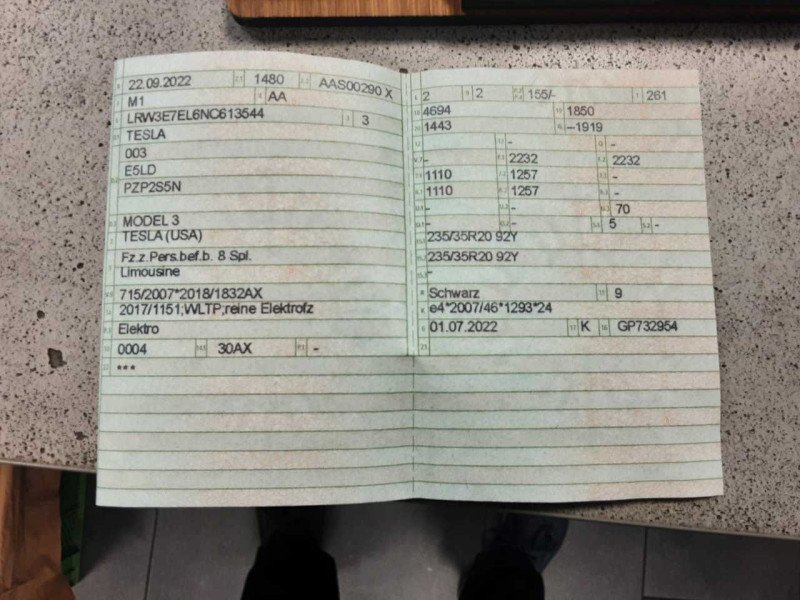 22.09.2022 2.1 1480 2.2 AAS00290 X
M1 AA
LRW3E7EL6NC613544 3 3
TESLA
003
E5LD
PZP2S5N
MODEL 3
TESLA (USA)
Fz.z.Pers.bef.b. 8 Spl.
Limousine
715/2007*2018/1832AX
2017/1151;WLTP;reine Elektrofz
Elektro
0004 14.1 30AX -
***
L 2 9 2 155/- T 261
18 4694 19 1850
20 1443 G --1919
- -
- 2232 F.2 2232
1110 1257 -
1110 1257 -
- - 70
- - 5 -
235/35R20 92Y
235/35R20 92Y
-
R Schwarz 11 9
K e4*2007/46*1293*24
6 01.07.2022 17 K 16 GP732954
21